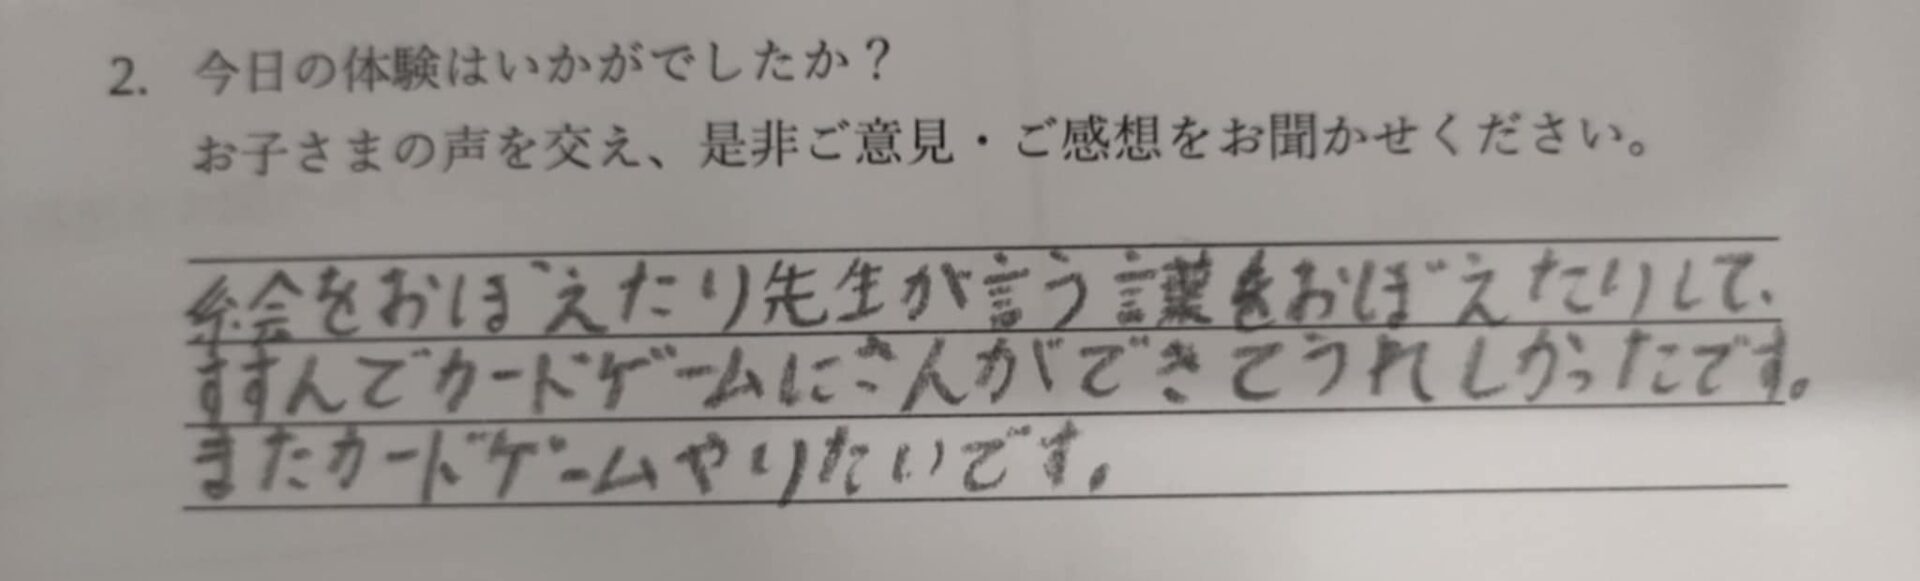 2. 今日の体験はいかがでしたか？
お子さまの声を交え、是非ご意見・ご感想をお聞かせください。
絵をおぼえたり先生が言う言葉をおぼえたりして、
すすんでカードゲームにさんがができてうれしかったです。
またカードゲームやりたいです。